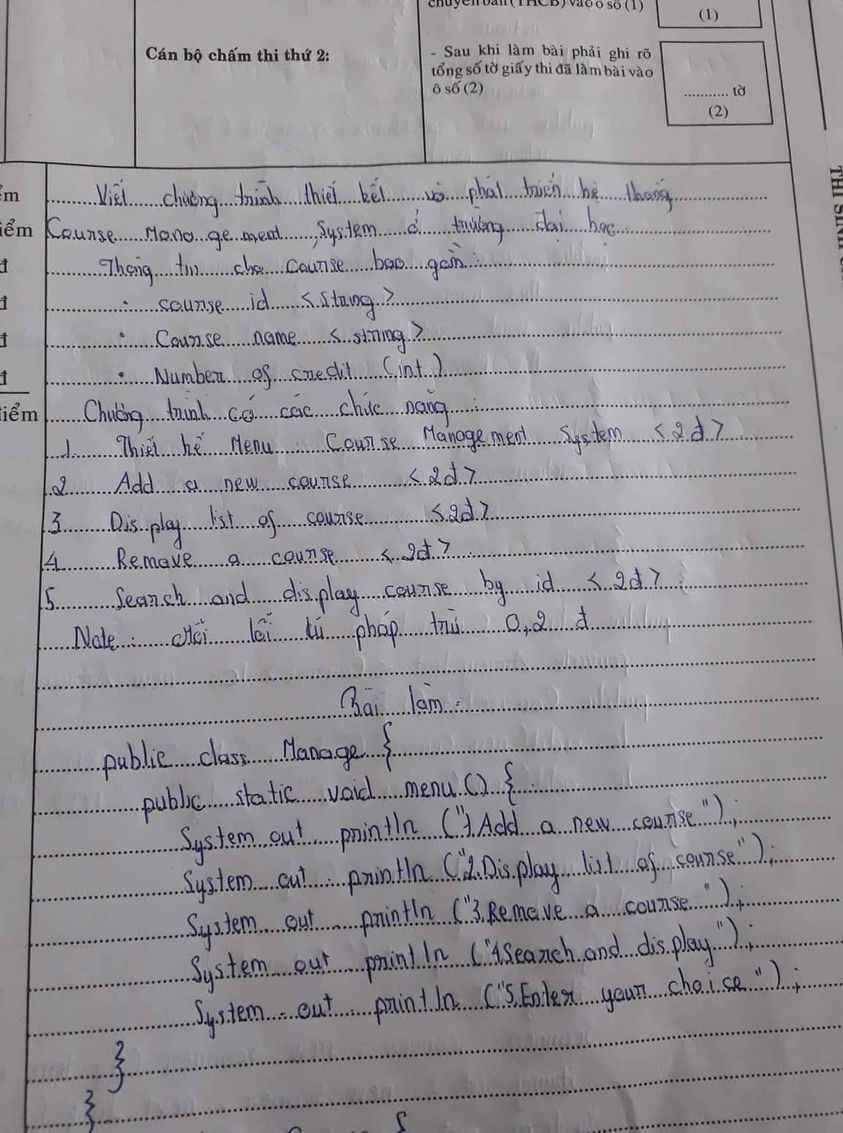 chuyên bản (THCB) vào ô số (1)
(1)
Cán bộ chấm thi thứ 2:
- Sau khi làm bài phải ghi rõ
tổng số tờ giấy thi đã làm bài vào
ô số (2)
........... tờ
(2)
THÍ SINH
iểm
đ
đ
đ
đ
iểm
Viết chương trình thiết kết và phát triển hệ thống
Course Management System ở trường đại học
Thông tin cho Course bao gồm :
• course id <string>
• Course name <string>
• Number of credit (int)
Chương trình có các chức năng :
1. Thiết kế Menu : Course Management System <2đ>
2 Add a new course <2đ>
3 Display list of course <2đ>
4 Remove a course <2đ>
5 Search and display course by id <2đ>
Note : Mỗi lỗi cú pháp trừ 0,2 đ
Bài làm :
public class Manage {
public static void menu () {
System out println ("1.Add a new course") ;
System out . println ("2.Display list of course") ;
System out println ("3.Remove a course") ;
System out println ("4.Search and display") ;
System . out println ("5.Enter your choice") ;
}
}
{